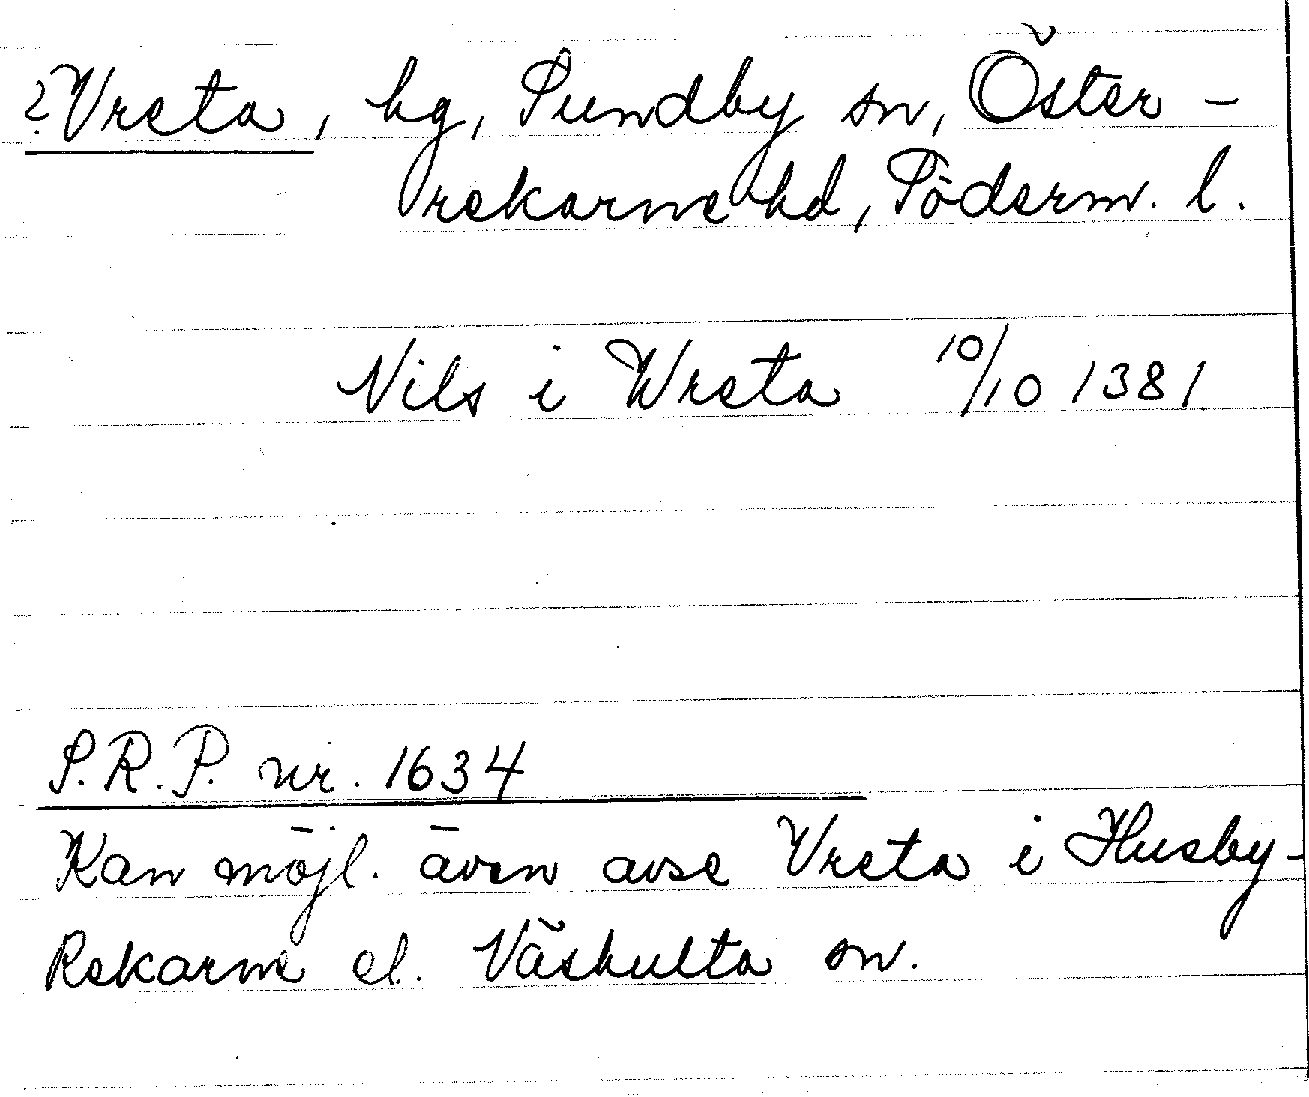 ?Vreta, hg, Sundby sn, Öster-
rekarne hd, Söderm. l.
Nils i Wreta 10/10 1381
S.R.P. nr. 1634
Kan möjl. även avse Vreta i Husby-
Rekarne el. Näshulta sn.